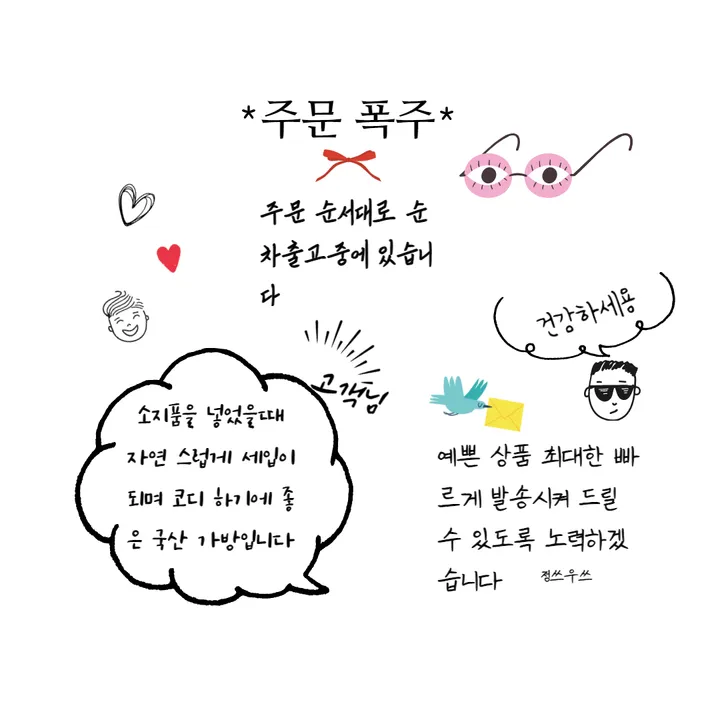 *주문 폭주*
주문 순서대로 순
차출고중에 있습니
다
건강하세용
고객님
소지품을 넣었을때
자연 스럽게 세입이
되며 코디 하기에 좋
은 국산 가방입니다
예쁜 상품 최대한 빠
르게 발송시켜 드릴
수 있도록 노력하겠
습니다
정쓰우쓰